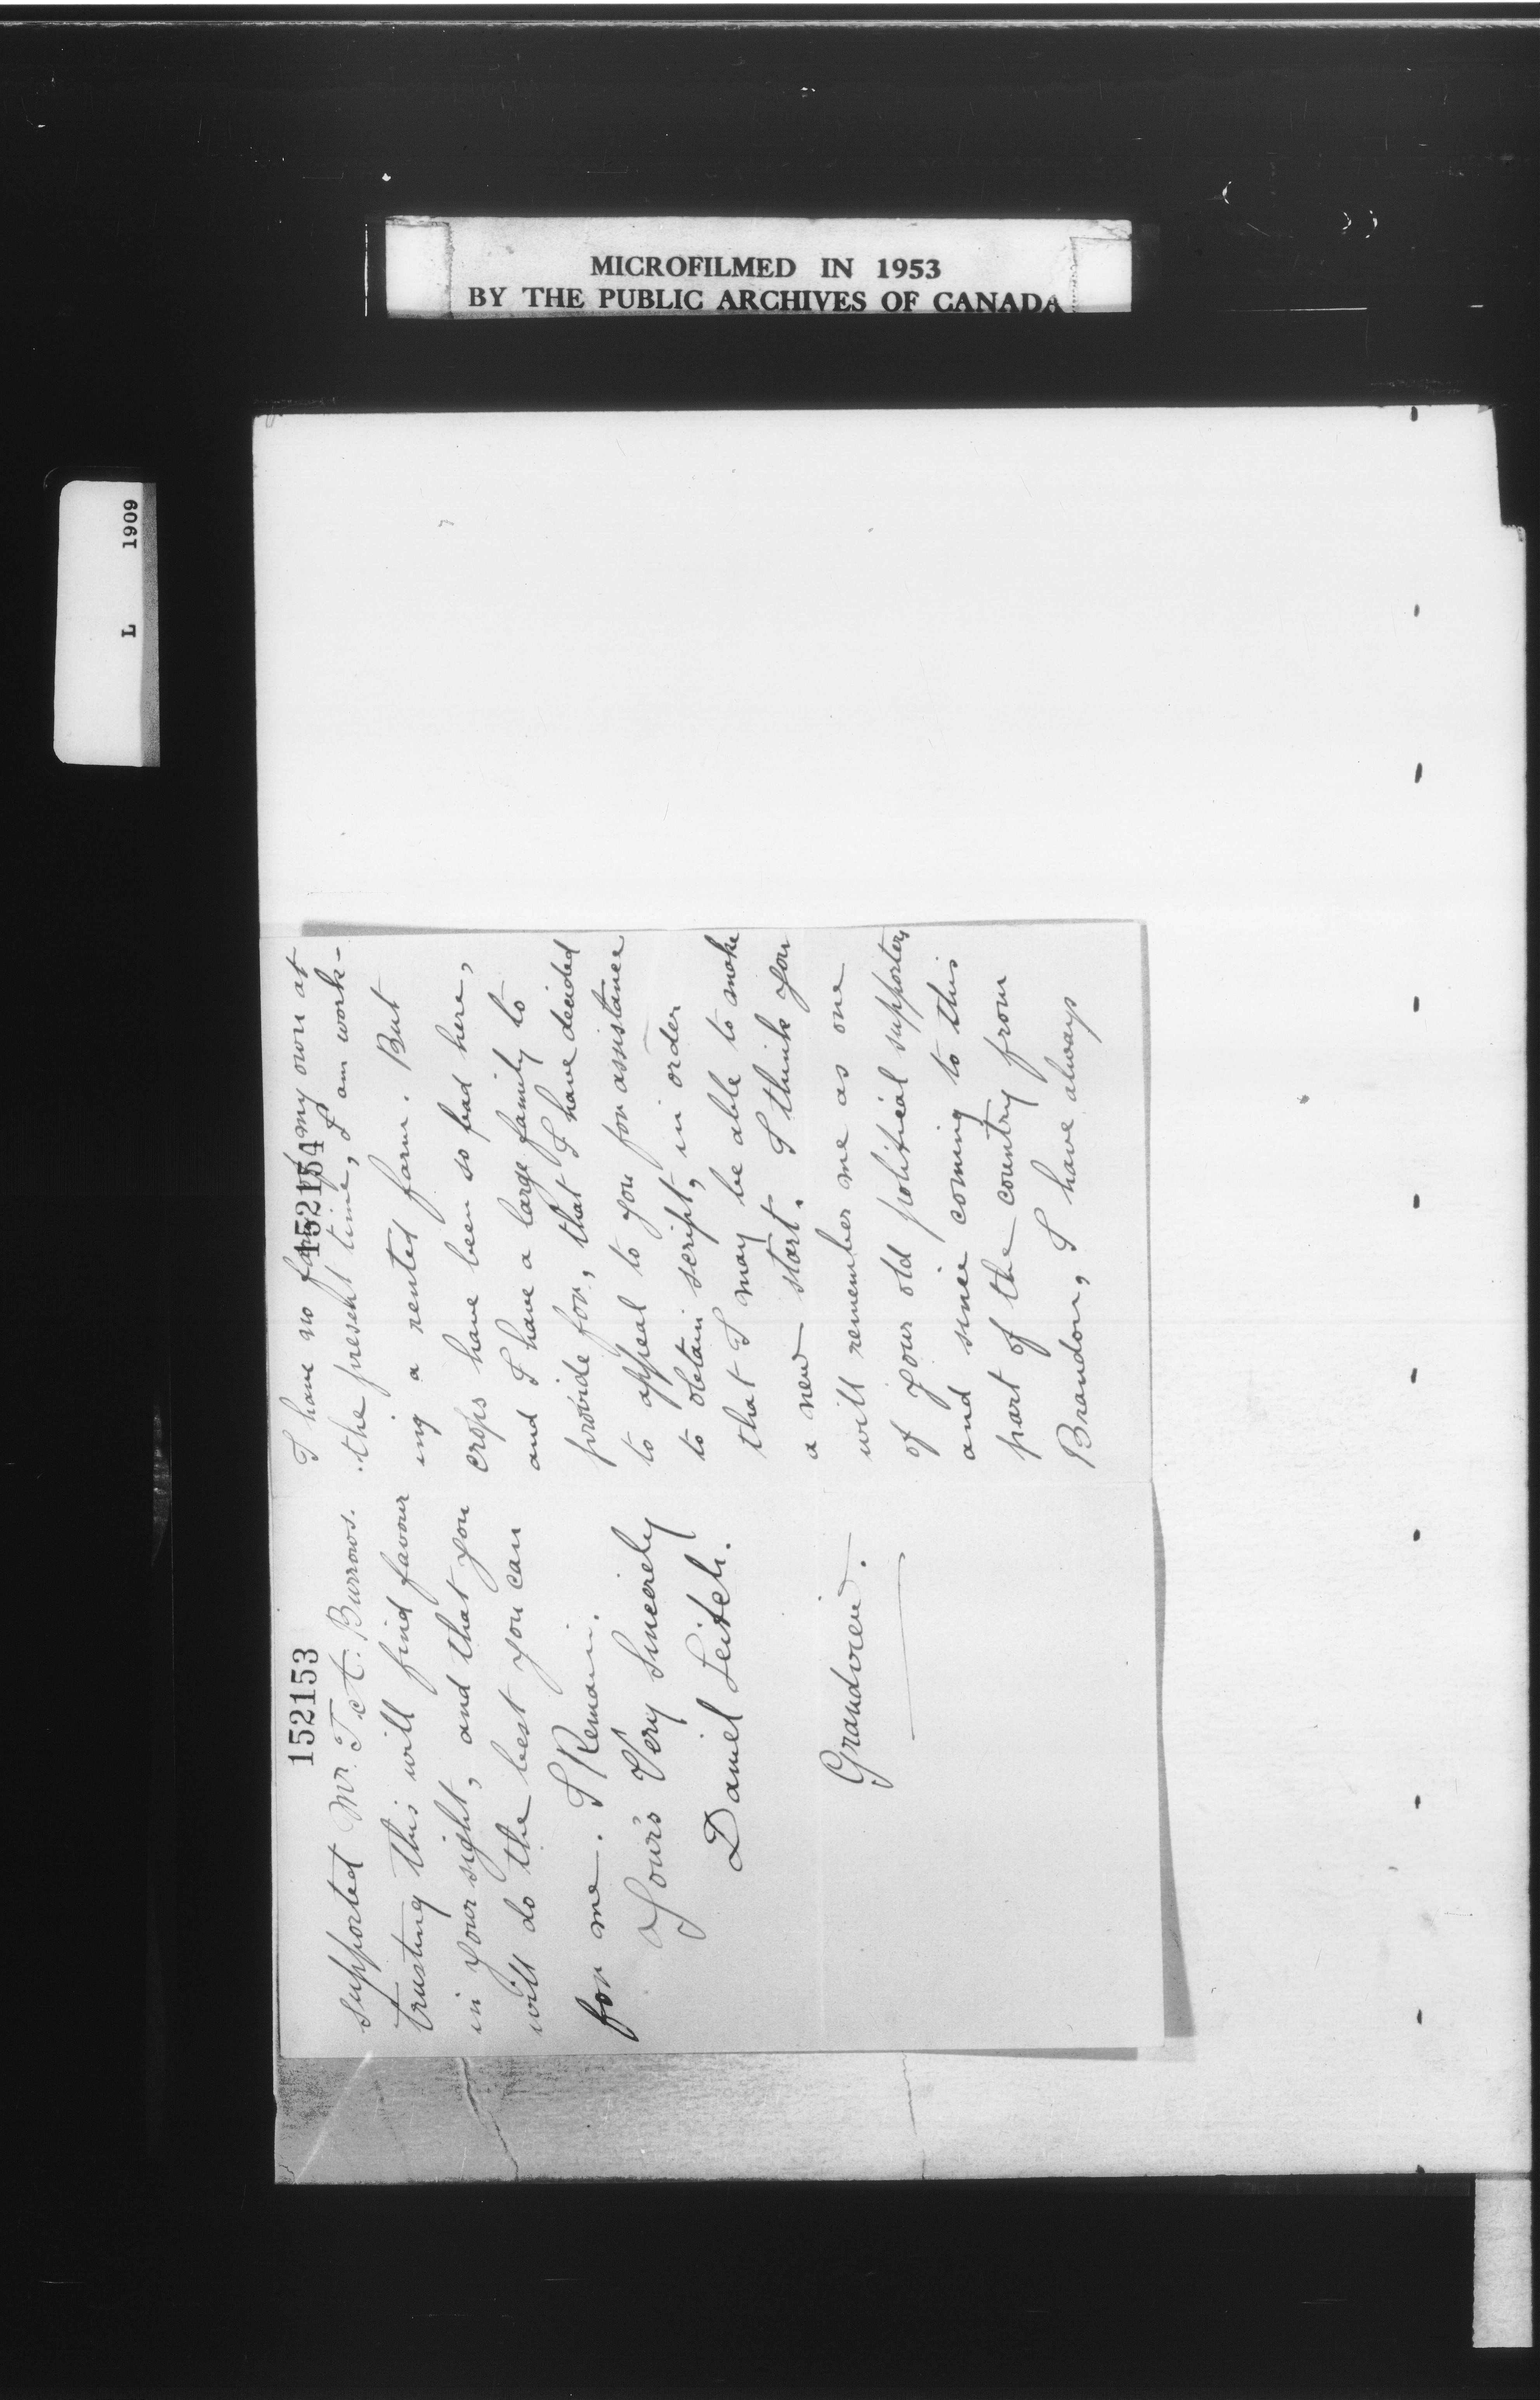 MICROFILMED IN 1953
BY THE PUBLIC ARCHIVES OF CANADA
L 1909
152154
I have no farm of my own at
the present time, I am work-
ing a rented farm. But
crops have been so bad here,
and I have a large family to
provide for, that I have decided
to appeal to you for assistance
to obtain script, in order
that I may be able to make
a new start. I think you
will remember me as one
of your old political supporters
and since coming to this
part of the country from
Brandon, I have always
152153
supported Mr. T. A. Burrows.
trusting this will find favour
in your sight, and that you
will do the best you can
for me. I Remain.
Yours Very Sincerely
Daniel Leitch.
Grandview.